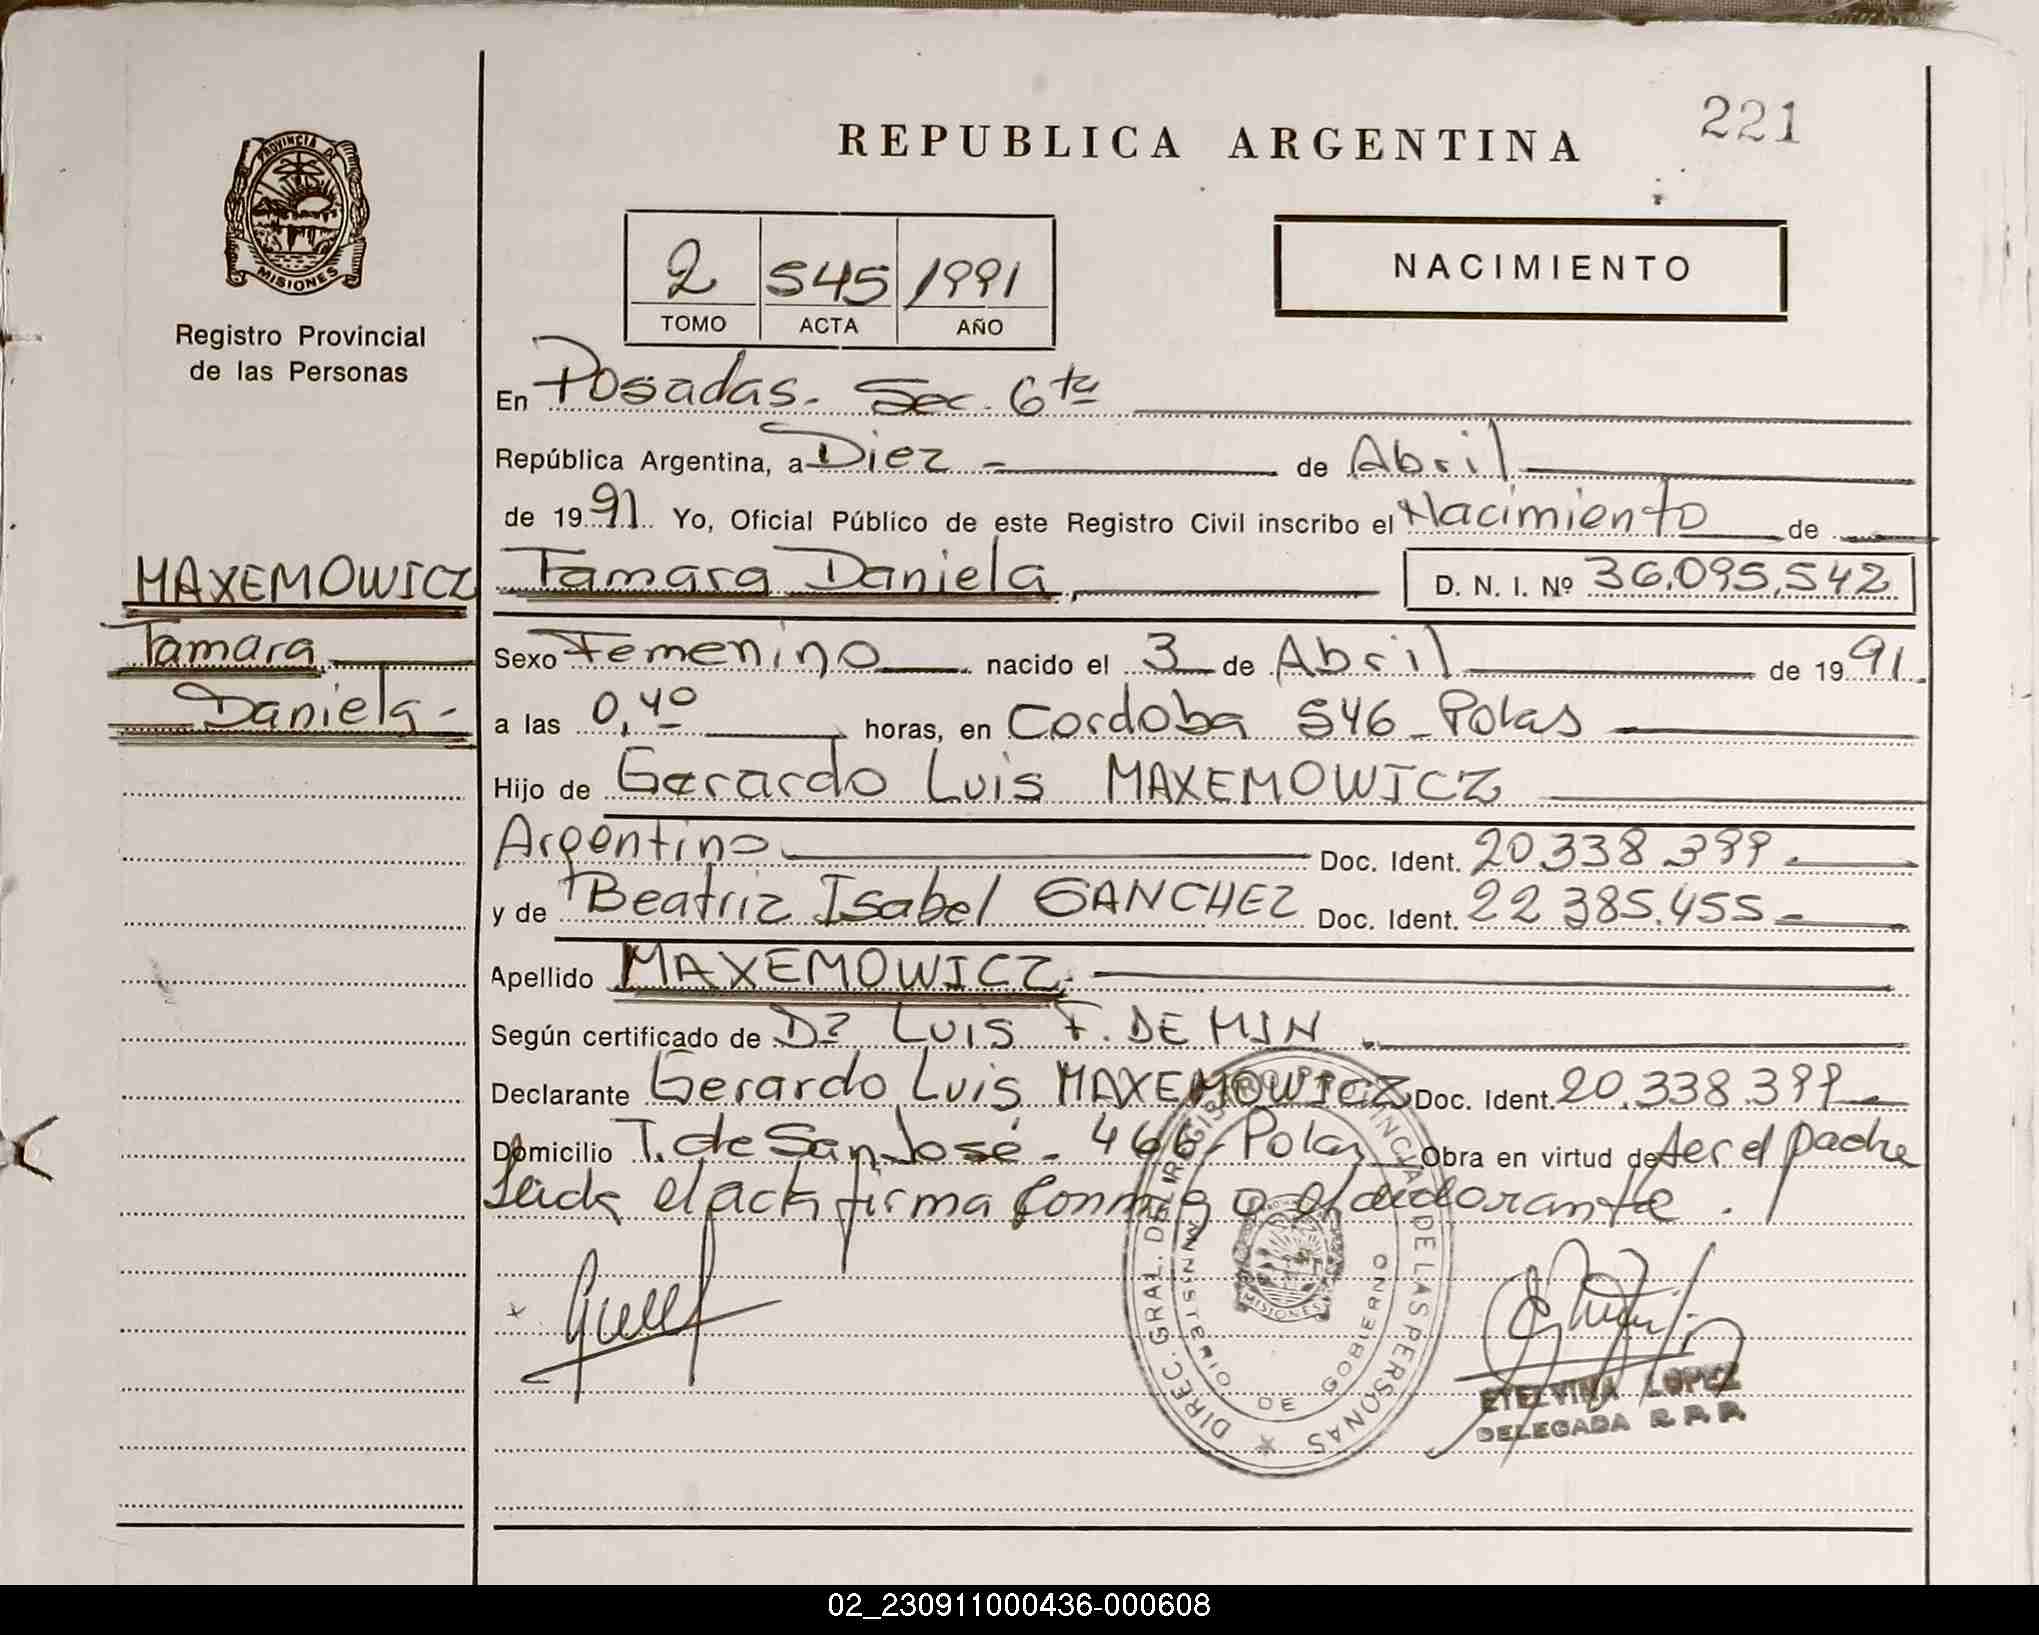 221
REPUBLICA ARGENTINA
PROVINCIA DE
MISIONES
Registro Provincial
de las Personas
2 545 1991
TOMO ACTA AÑO
NACIMIENTO
En Posadas. Sec. 6ta
República Argentina, a Diez - de Abril
de 1991 Yo, Oficial Público de este Registro Civil inscribo el Nacimiento de
MAXEMOWICZ
Tamara
Daniela -
Tamara Daniela D. N. I. Nº 36.095.542
Sexo Femenino nacido el 3 de Abril de 1991.
a las 0,40 horas, en Cordoba 546 - Pdas
Hijo de Gerardo Luis MAXEMOWICZ
Argentino Doc. Ident. 20.338.399 -
y de Beatriz Isabel SANCHEZ Doc. Ident. 22.385.455 -
Apellido MAXEMOWICZ
Según certificado de Dr LUIS F. DE MIN
Declarante Gerardo Luis MAXEMOWICZ Doc. Ident. 20.338.399
Domicilio T. de San José - 466 - Pdas Obra en virtud de ser el padre
Leida el acta firma conmigo el declarante.
DIREC. GRAL. DEL REGISTRO PROVINCIAL DE LAS PERSONAS
MINISTERIO DE GOBIERNO
MISIONES
ETELVINA LOPEZ
DELEGADA R. P. P.
02_230911000436-000608